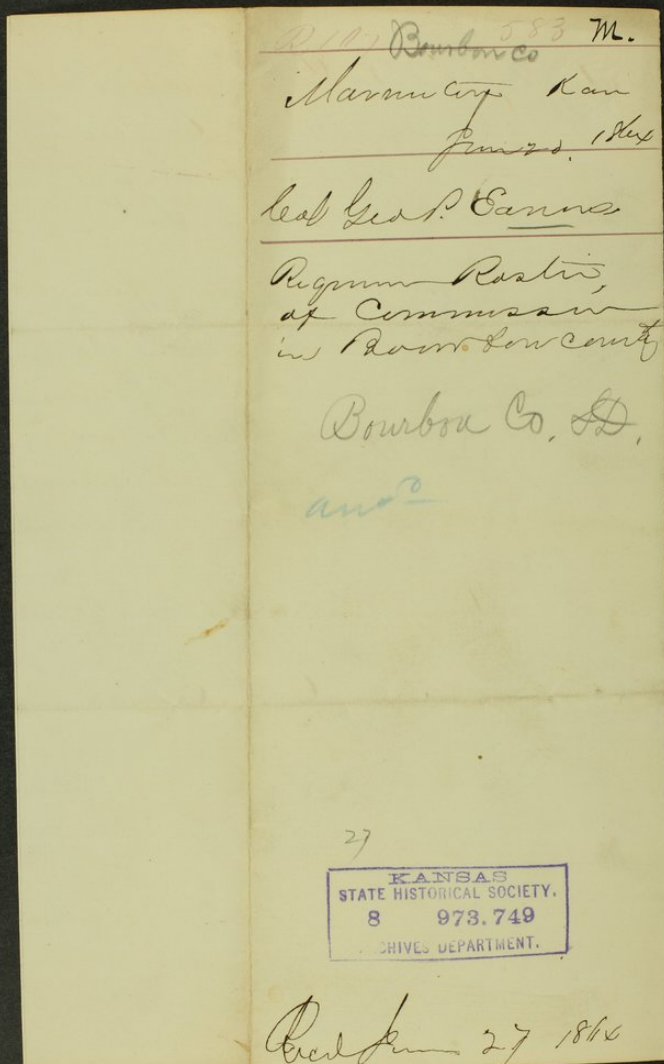 583 M.
Bourbon Co
Marmaton Kan
June 20. 1864
Col Geo P. Eaves
Requires Roster
of Commission
in Bourbon County
Bourbon Co. SD.
ansd
27
KANSAS
STATE HISTORICAL SOCIETY.
8 973.749
CHIVES DEPARTMENT.
Recd June 27 1864